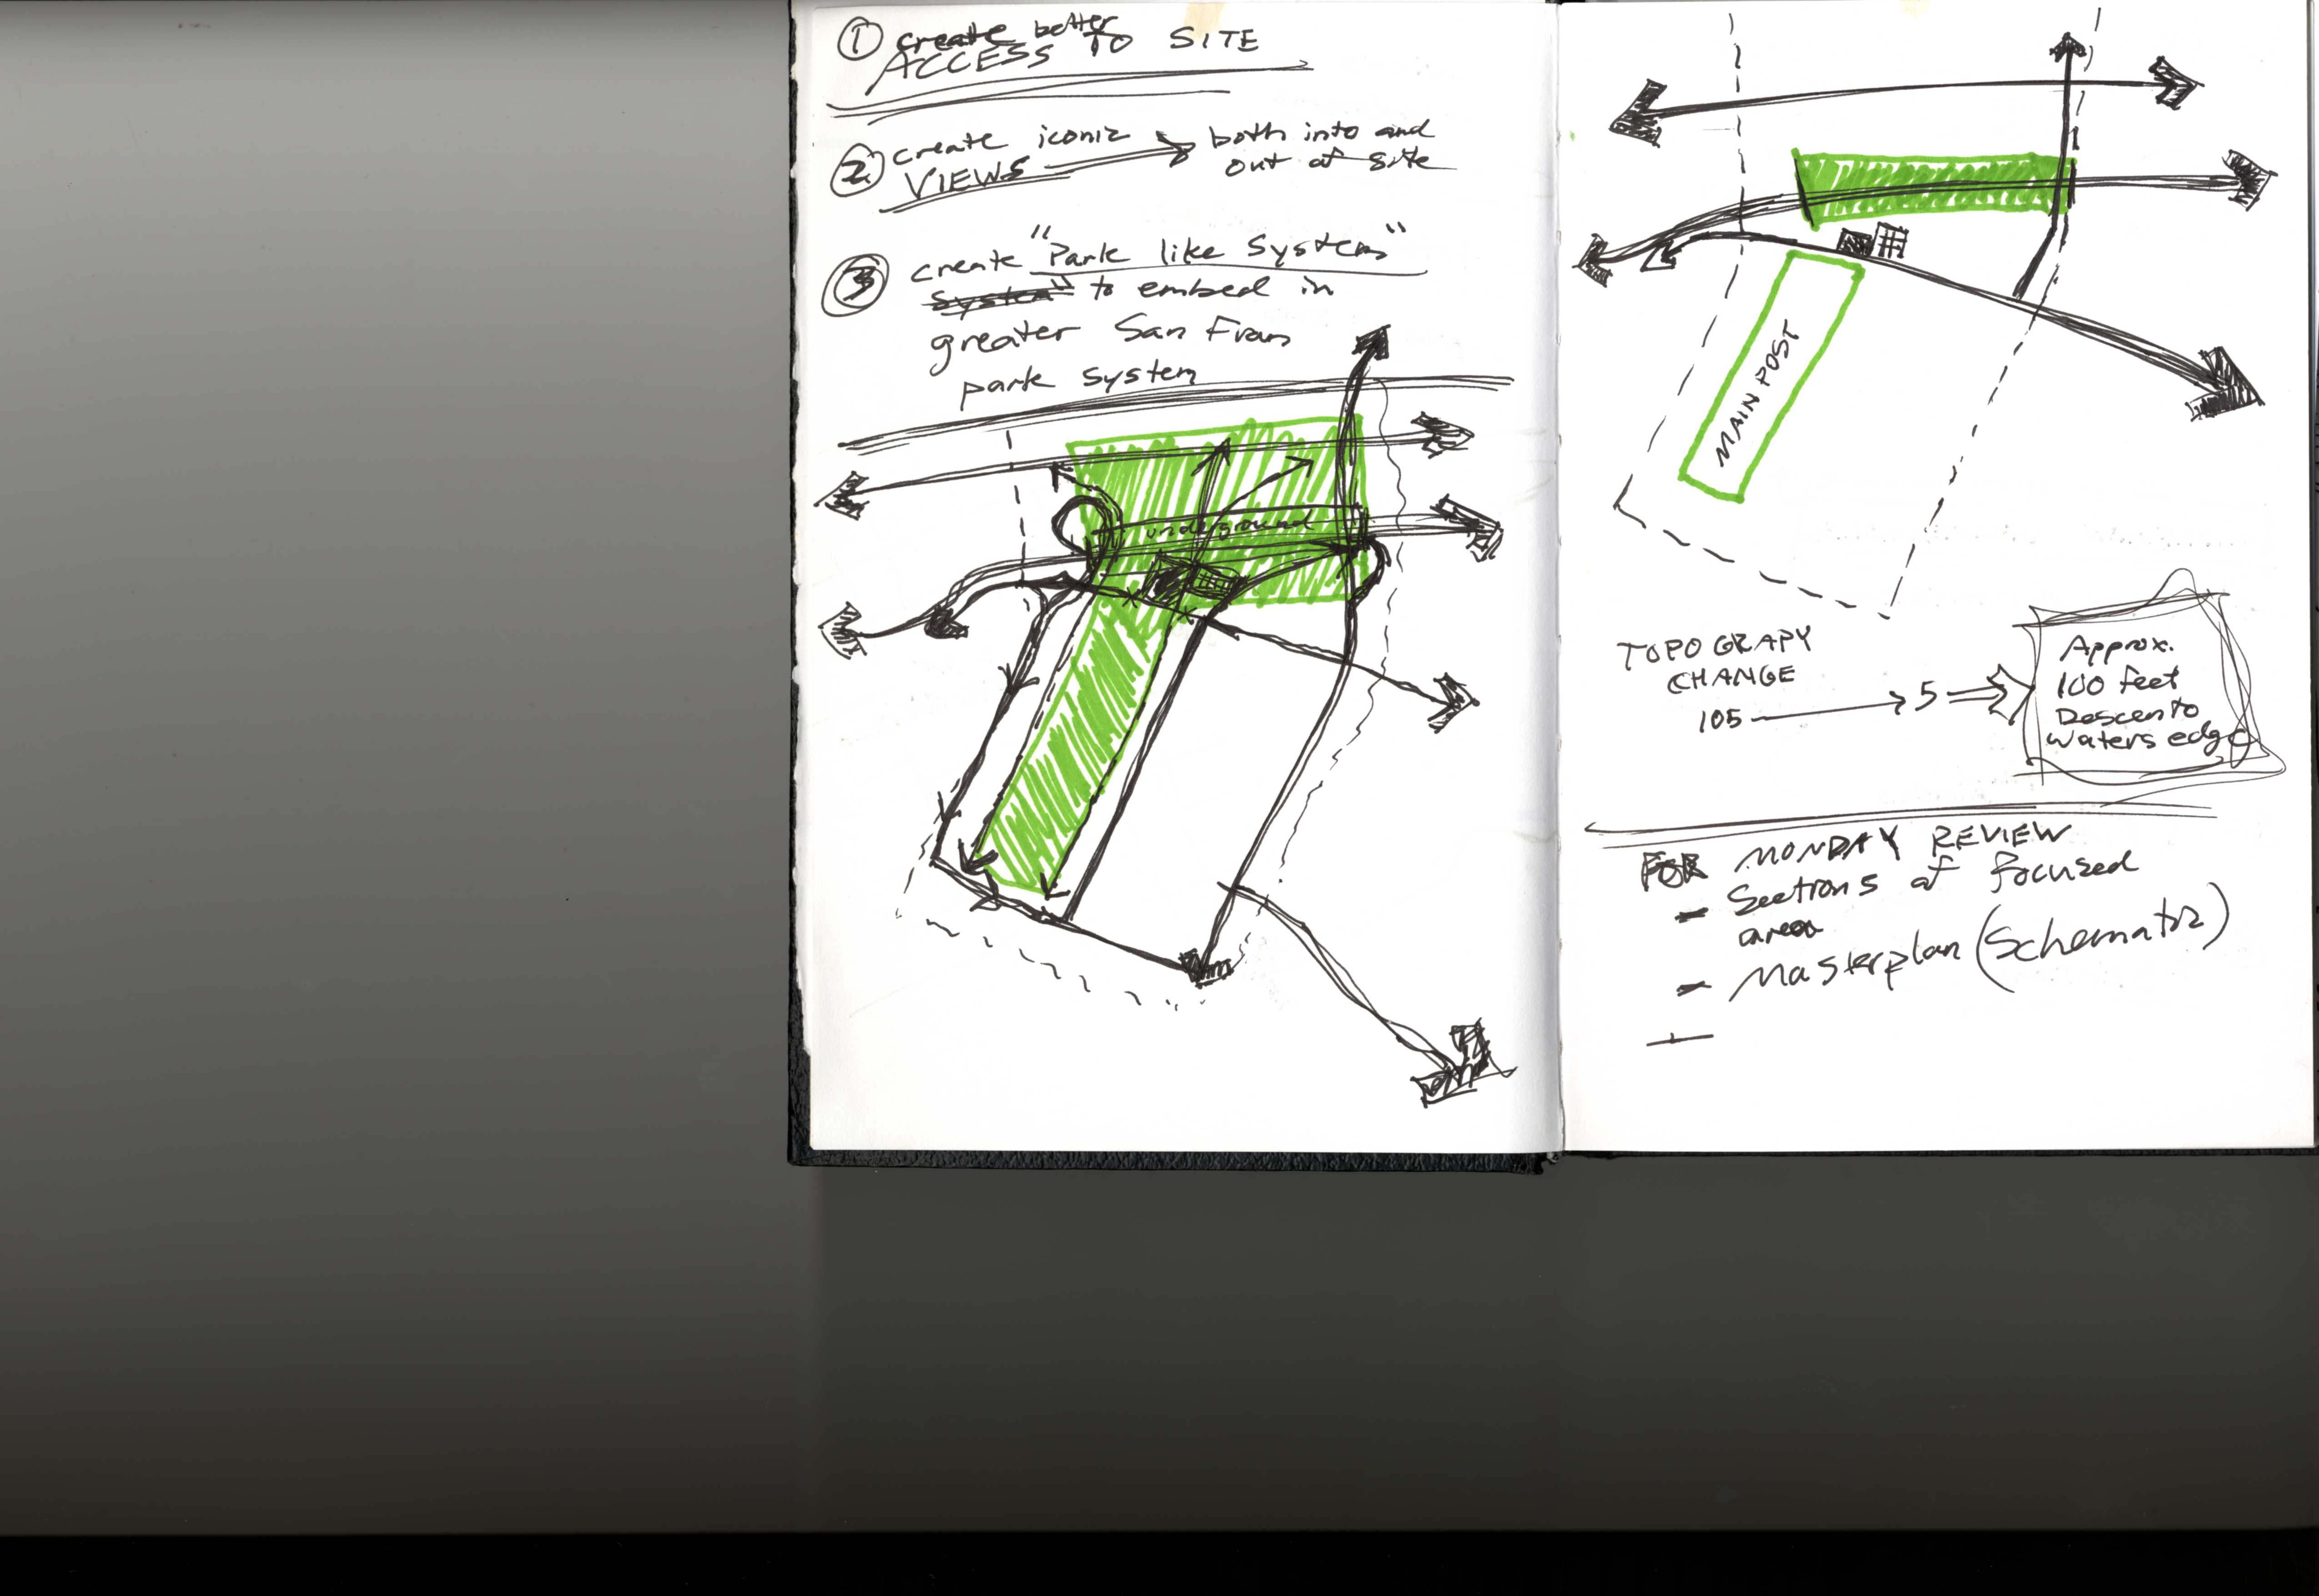 ① create better
ACCESS TO SITE
② create iconic both into and
VIEWS out of site
③ create "Park like System"
System" to embed in
greater San Fran
park system
underground
MAIN POST
TOPOGRAPY
CHANGE
105 → 5 ⇒
Approx.
100 feet
Descen to
waters edge
FOR MONDAY REVIEW
- Sections of focused
area
- Masterplan (Schematic)
-